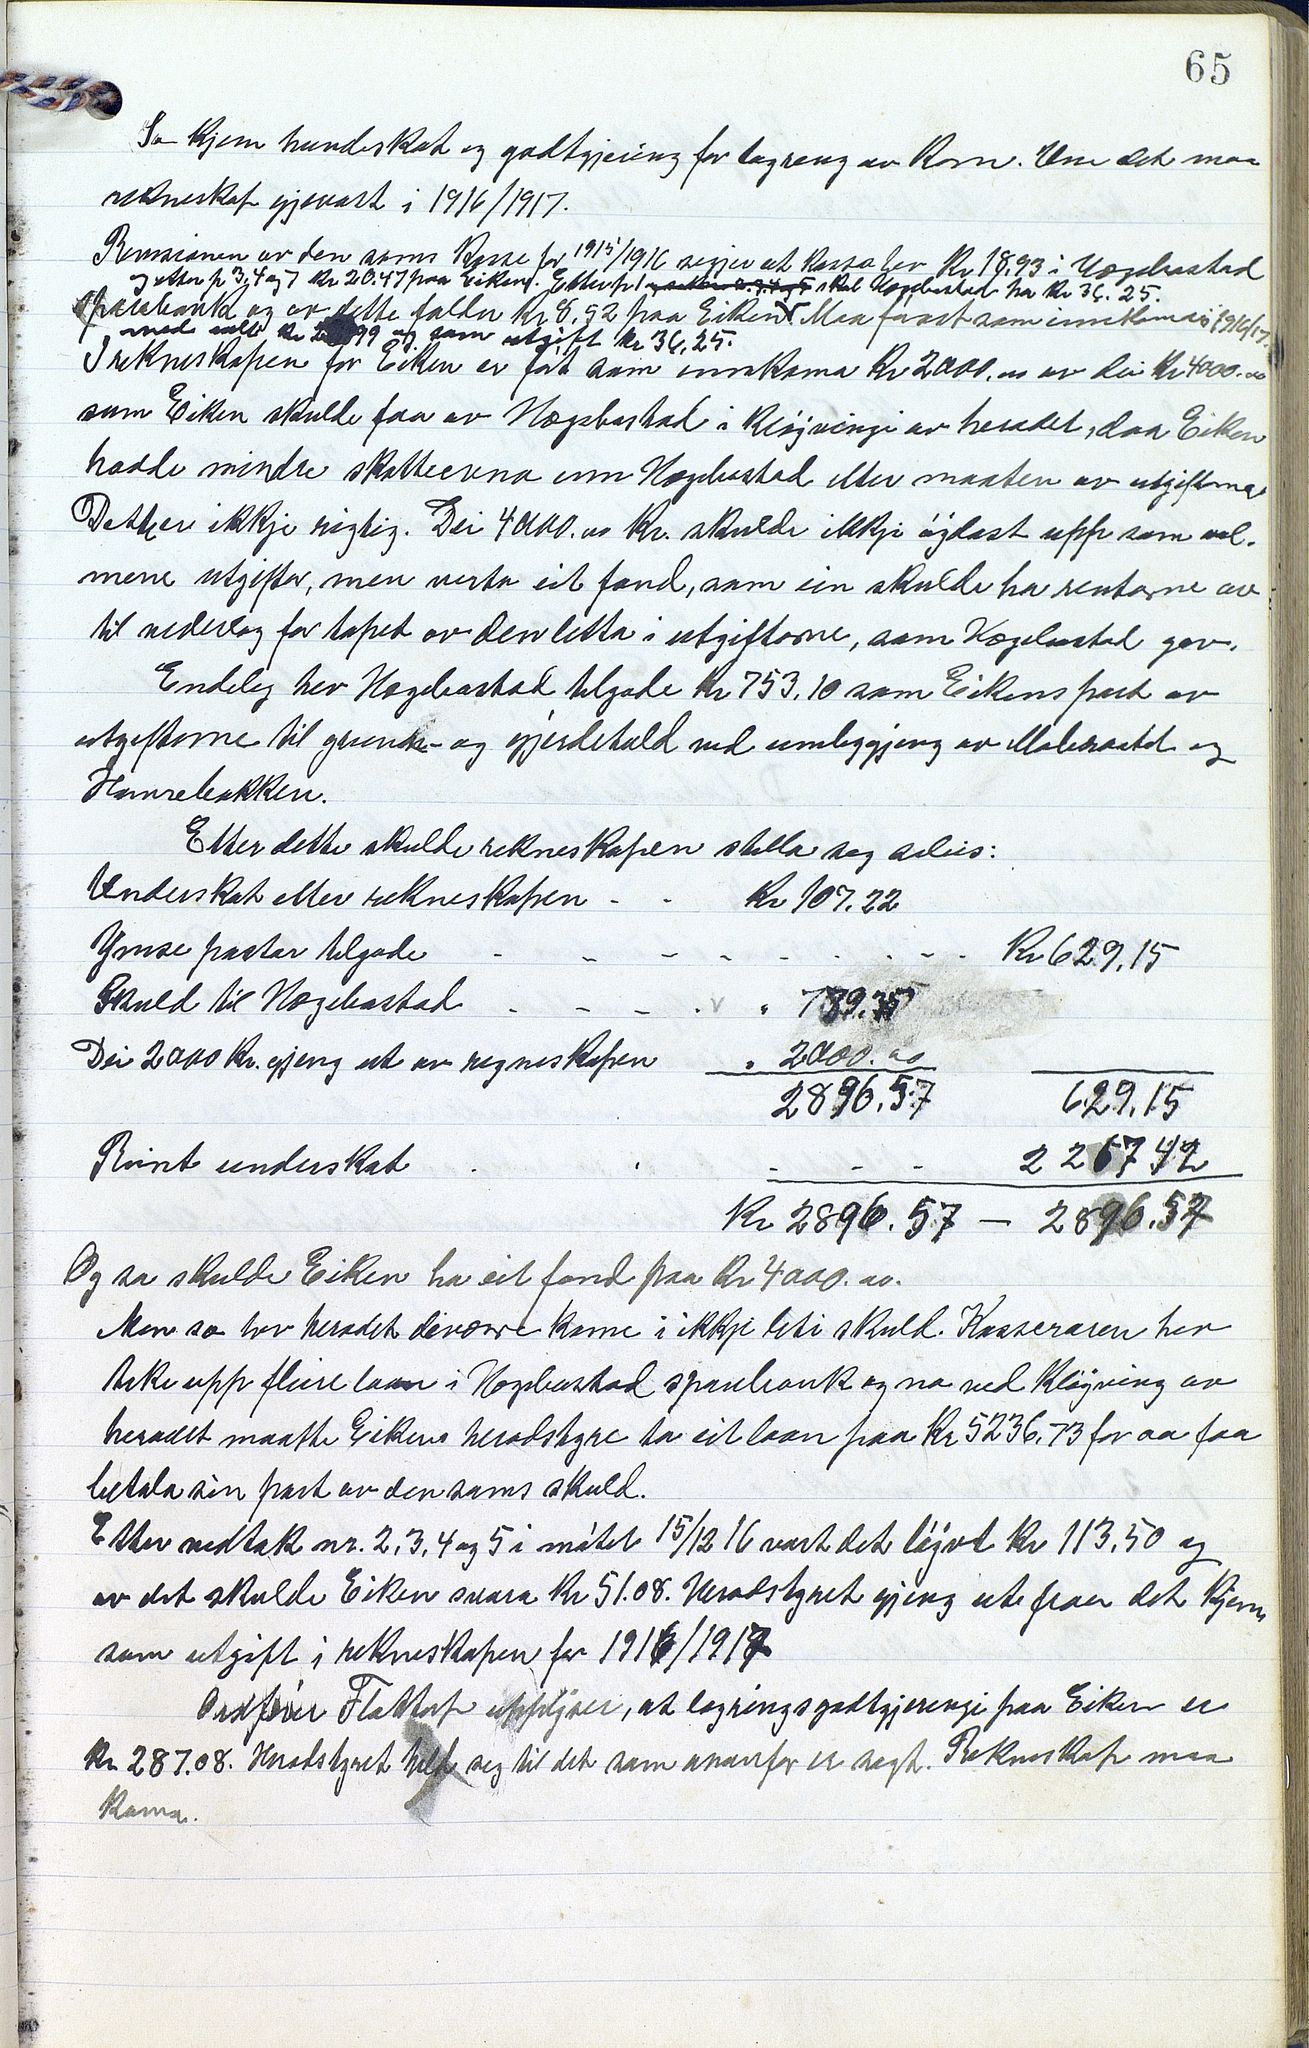 65
So kjem hundeskat og godtgjering for lagring av korn. Um det maa
rekneskap gjevast i 1916/1917.
Revisionen av den sams kasse for 1915/1916 segjer at kassa hev Kr 18.93 i Hægebostad
og etter p 3, 4 og 7 kr 20.47 paa Eiken. Etter p 1 skal Hægebostad ha kr 36.25.
sparebank og av dette falder Kr 8,52 paa Eiken. Maa først som innkoma i 1916/17.
med kr 99 og som utgift kr 36,25.
I rekneskapen for Eiken er ført som innkoma Kr 2000.00 av dei Kr 4000.00
som Eiken skulde faa av Hægebostad i kløyvingi av heradet, daa Eiken
hadde mindre skatteevna enn Hægebostad etter maaten av utgiftorne.
Dette er ikkje rigtig. Dei 4000.00 Kr. skulde ikkje øydast upp som vel-
mene utgifter, men verta eit fond, som ein skulde ha rentorne av
til vederlag for tapet av den letta i utgiftorne, som Hægebostad gav.
Endeleg hev Hægebostad tilgode Kr 753,10 som Eikens part av
utgiftorne til grunn- og gjerdehald ved umleggjing av Moberaatt og
Hamrebakken.
Etter dette skulde rekneskapen stella seg soleis:
Underskot etter rekneskapen - - Kr 107.22
Ymse postar tilgode - - - - - - - - - Kr 629,15
Skuld til Hægebostad - - - - " 789.35
Dei 2000 Kr. gjeng ut av regneskapen " 2000.00
2896.57 629,15
Reint underskot - - - - - 2267 42
Kr 2896.57 — 2896.57
Og so skulde Eiken ha eit fond paa Kr 4000.00.
Men so hev heradet diverre kome i ikkje liti skuld. Kasseraren hev
teke upp fleire laan i Hægebostad sparebank og no ved kløyving av
heradet maatte Eikens heradstyre ta eit laan paa Kr 5236,73 for aa faa
betala sin part av den sams skuld.
Etter vedtak nr. 2, 3, 4 og 5 i møtet 15/12 16 vart det løyvt Kr 113,50 og
av det skulde Eiken svara Kr 51.08. Heradstyret gjeng ut ifraa det kjem
som utgift i rekneskapen for 1916/1917
Ordførar Flottorp upplyser, at lagringsgodtgjeringi paa Eiken er
Kr 287.08. Heradstyret held seg til det som ovanfor er sagt. Rekneskap maa
koma.